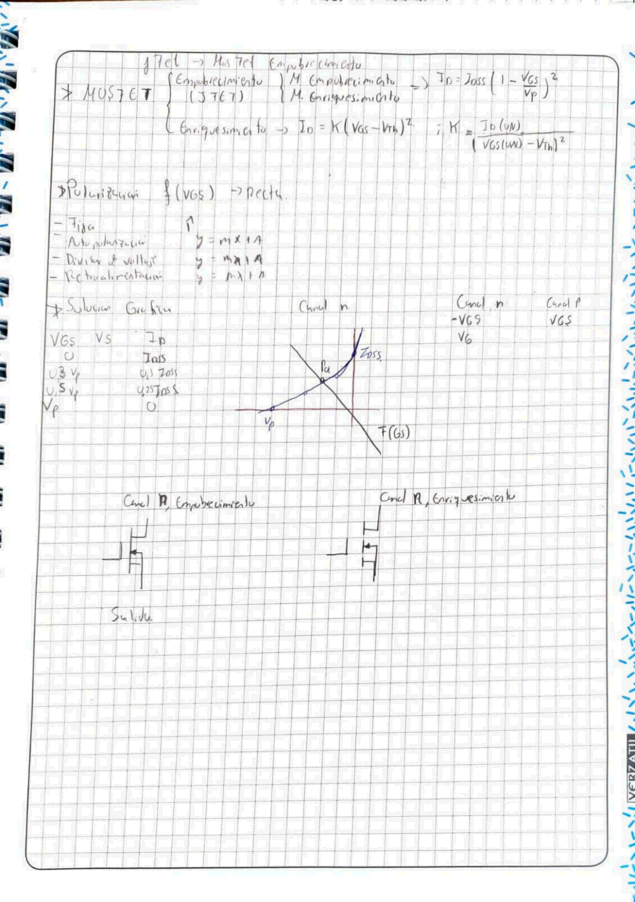 jfet → Mosfet Empobrecimiento
* MOSFET { Empobrecimiento (JFET) { M. Empobrecimiento
M. Enriquesimiento => ID = IDSS (1 - VGS/VP)²
Enriquesimiento → ID = K(VGS - VTh)² ; K = ID(ON) / (VGS(ON) - VTh)²
*Polarización f(VGS) → Recta
- Fija
- Autopolarización y = mx+A
- Divisor de voltaje y = mx+A
- Retroalimentación y = mx+A
* Solución Grafica Canal n Canal n Canal P
-VGS VGS
VGS VS ID VG
0 IDSS IDSS
0,3 Vp 0,5 IDSS Pq
0,5 Vp 0,25 IDSS
Vp 0
Vp
F(GS)
Canal n, Empobrecimiento Canal n, Enriquesimiento
Salida
VERZATIL